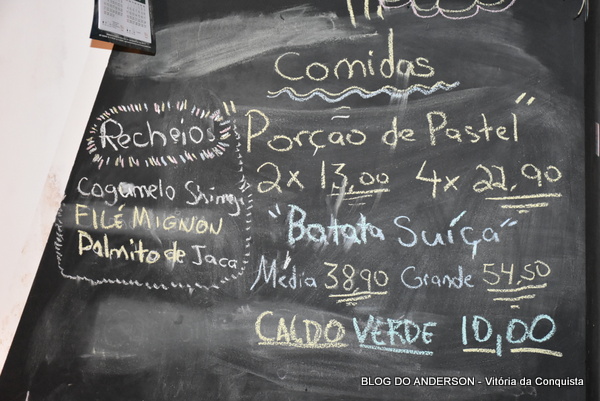 Comidas
Recheios
Cogumelo Shimeji
FILÉ MIGNON
Palmito de Jaca
"Porção de Pastel"
2x 13,00 4x 22,90
"Batata Suíça"
Média 38,90 Grande 54,50
CALDO VERDE 10,00
BLOG DO ANDERSON - Vitória da Conquista